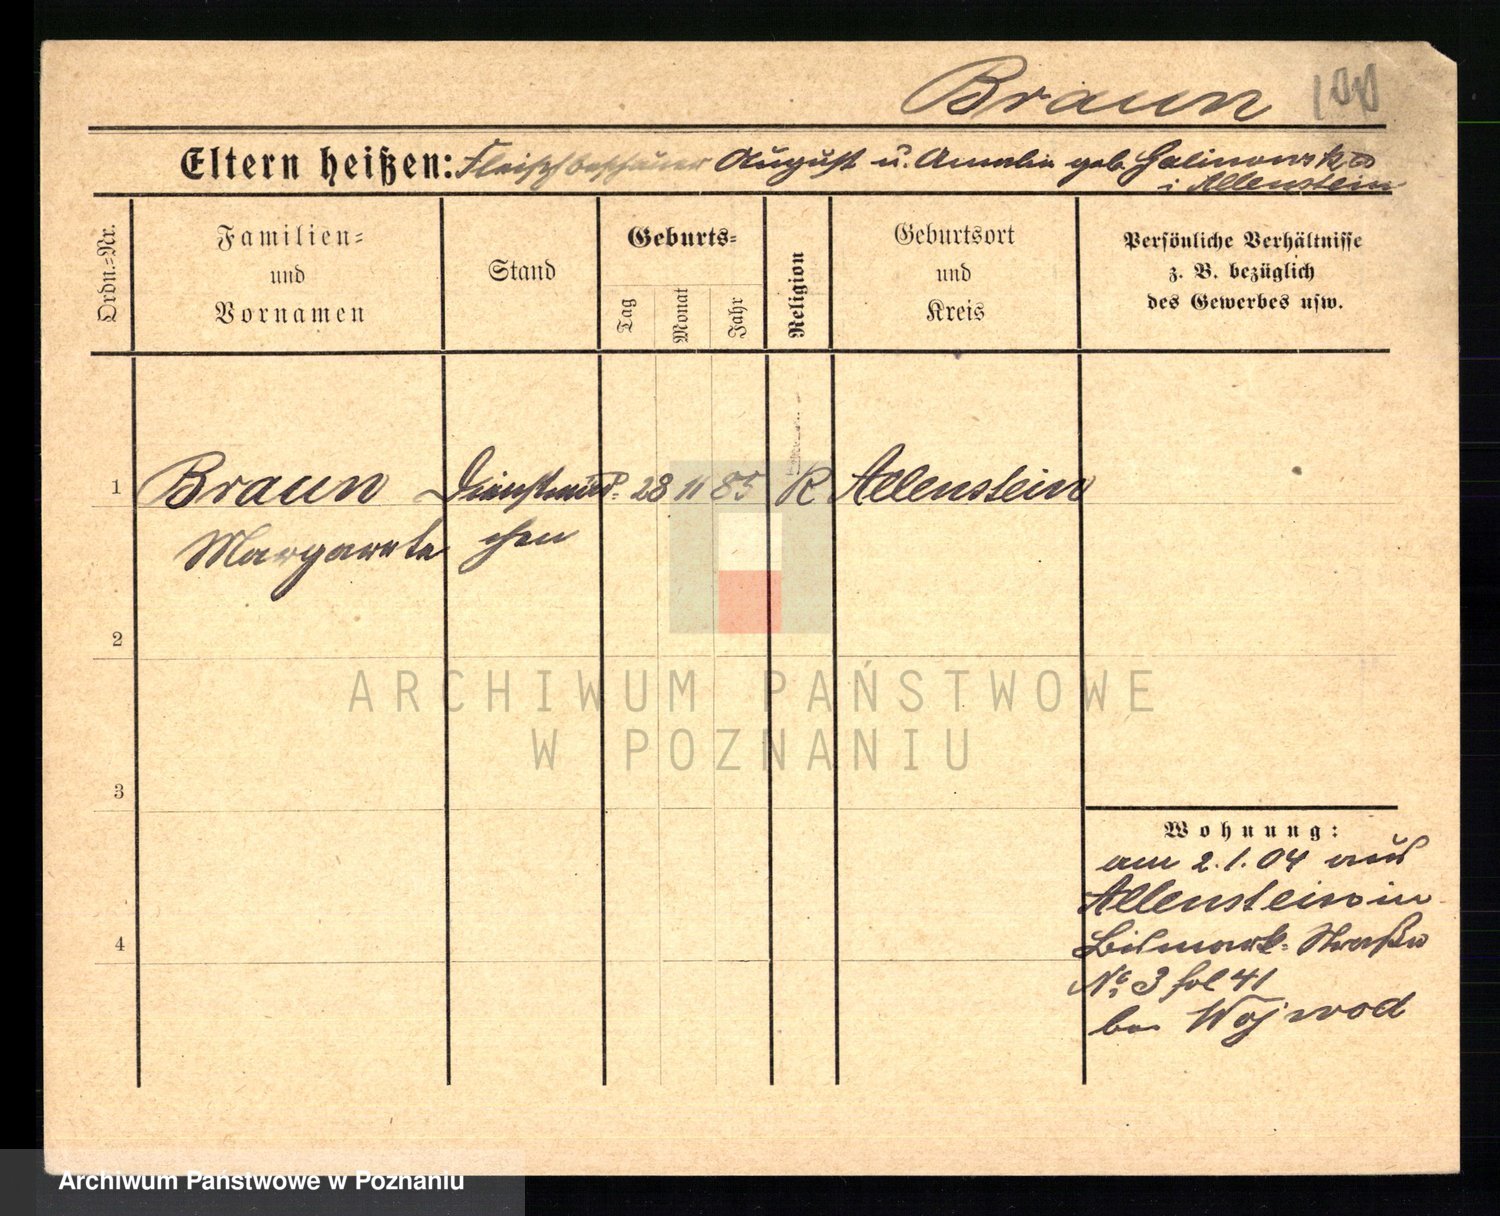 Braun 100
Eltern heißen: Fleischbeschauer August u. Amalie geb. Galinowski
i Allenstein
Ordn.-Nr.
Familien-
und
Vornamen
Stand
Geburts-
Tag
Monat
Jahr
Religion
Geburtsort
und
Kreis
Persönliche Verhältnisse
z. B. bezüglich
des Gewerbes usw.
1 Braun Dienstmäd- 28 11 85 K Allenstein
Margarete chen
2
3
4
Wohnung:
am 2.1.04 aus
Allenstein in
Bismark-Straße
No. 3 fol 41
bei Wojwod
ARCHIWUM PAŃSTWOWE
W POZNANIU
Archiwum Państwowe w Poznaniu